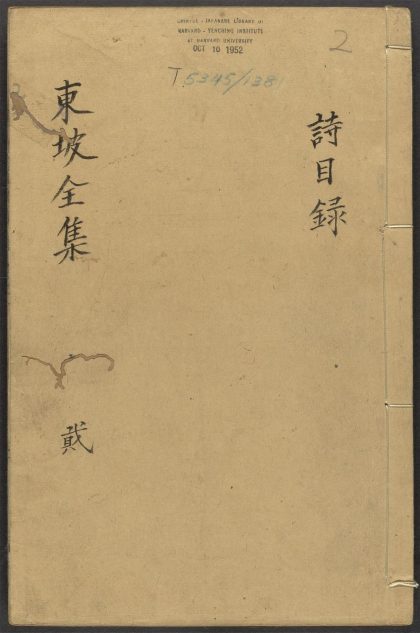 CHINESE - JAPANESE LIBRARY OF
HARVARD - YENCHING INSTITUTE
AT HARVARD UNIVERSITY
OCT 10 1952
2
T5345/1381
詩目録
東坡全集
貳